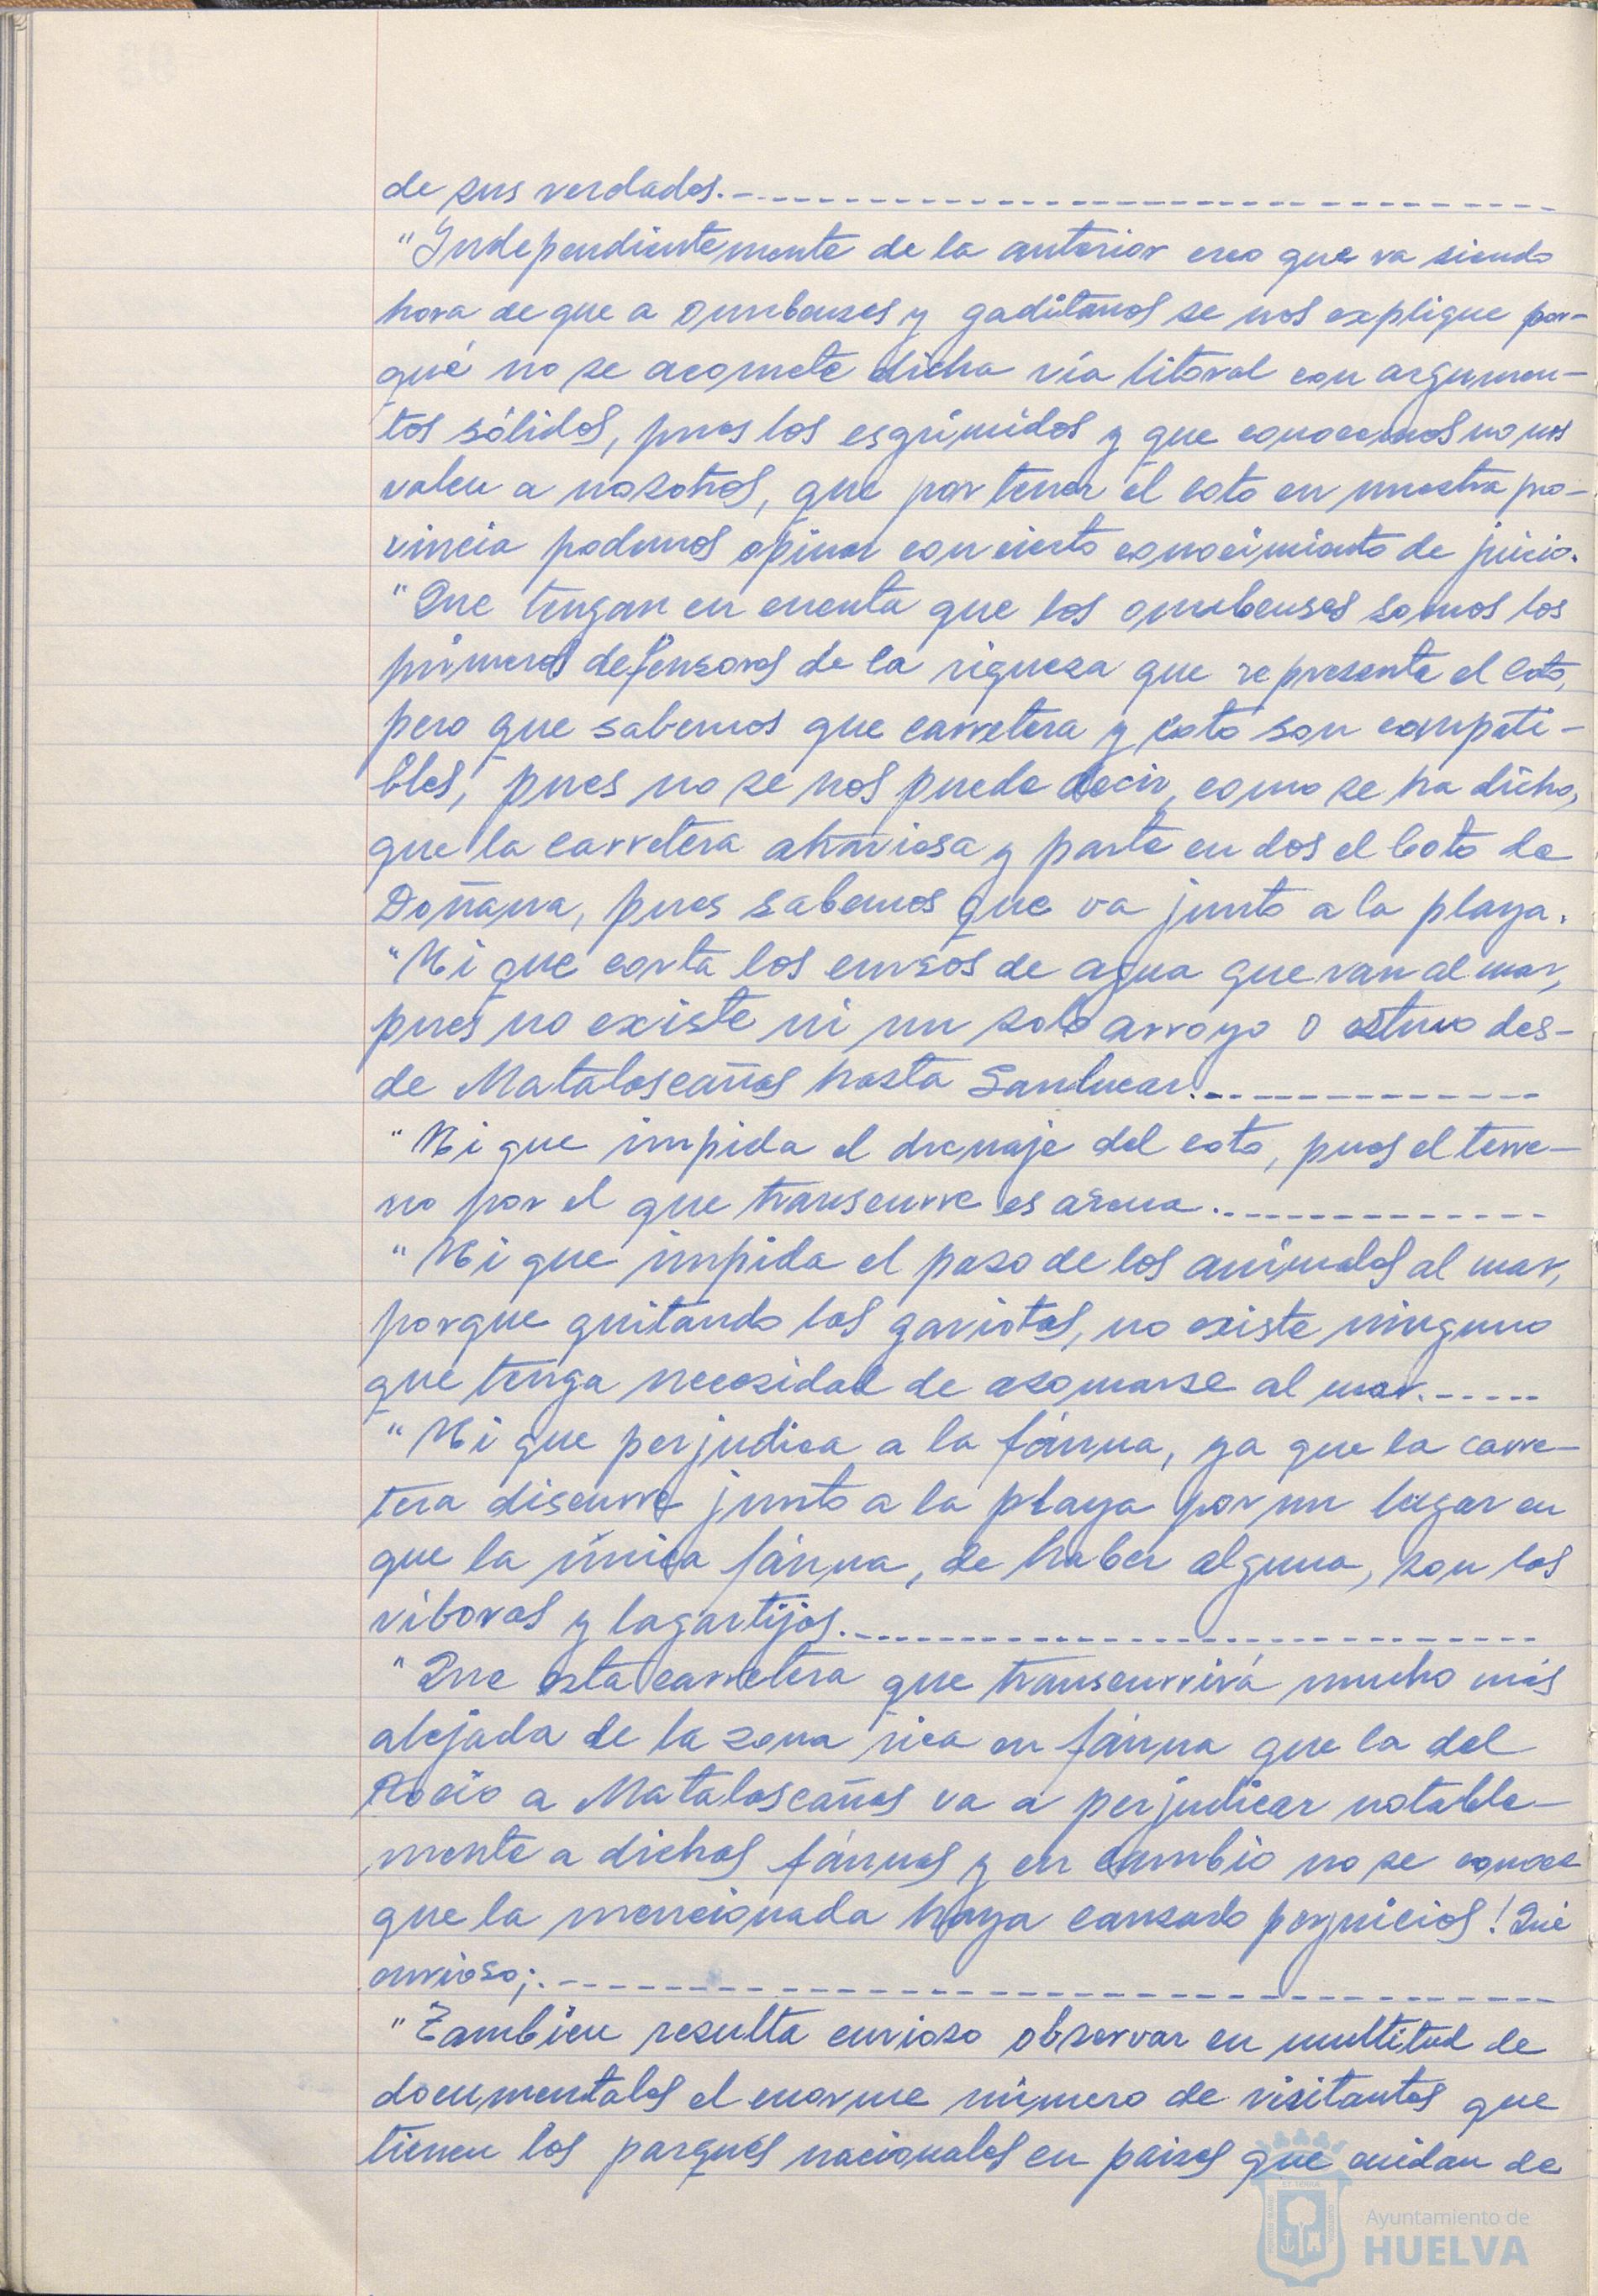 de sus verdades.-
"Independientemente de la anterior creo que va siendo
hora de que a onubenses y gaditanos se nos explique por-
qué no se acomete dicha vía litoral con argumen-
tos sólidos, pues los esgrimidos y que conocemos no nos
valen a nosotros, que por tener el coto en nuestra pro-
vincia podemos opinar con cierto conocimiento de juicio.
"Que tengan en cuenta que los onubenses somos los
primeros defensores de la riqueza que representa el Coto,
pero que sabemos que carretera y coto son compati-
bles, pues no se nos puede decir, como se ha dicho,
que la carretera atraviesa y parte en dos el Coto de
Doñana, pues sabemos que va junto a la playa.
"Ni que corta los cursos de agua que van al mar,
pues no existe ni un solo arroyo o estero des-
de Matalascañas hasta Sanlucar.-
"Ni que impida el drenaje del coto, pues el terre-
no por el que transcurre es arena.-
"Ni que impida el paso de los animales al mar,
porque quitando las gaviotas, no existe ninguno
que tenga necesidad de asomarse al mar.-
"Ni que perjudica a la fáuna, ya que la carre-
tera discurre junto a la playa por un lugar en
que la única fáuna, de haber alguna, son las
viboras y lagartijas.-
"Que esta carretera que transcurrirá mucho más
alejada de la zona rica en fáuna que la del
Rocio a Matalascañas va a perjudicar notable-
mente a dichas fáunas y en cambio no se conoce
que la mencionada haya causado perjuicios! Qué
curioso;.-
"Tambien resulta curioso observar en multitud de
documentales el enorme número de visitantes que
tienen los parques nacionales en paises que cuidan de
Ayuntamiento de
HUELVA